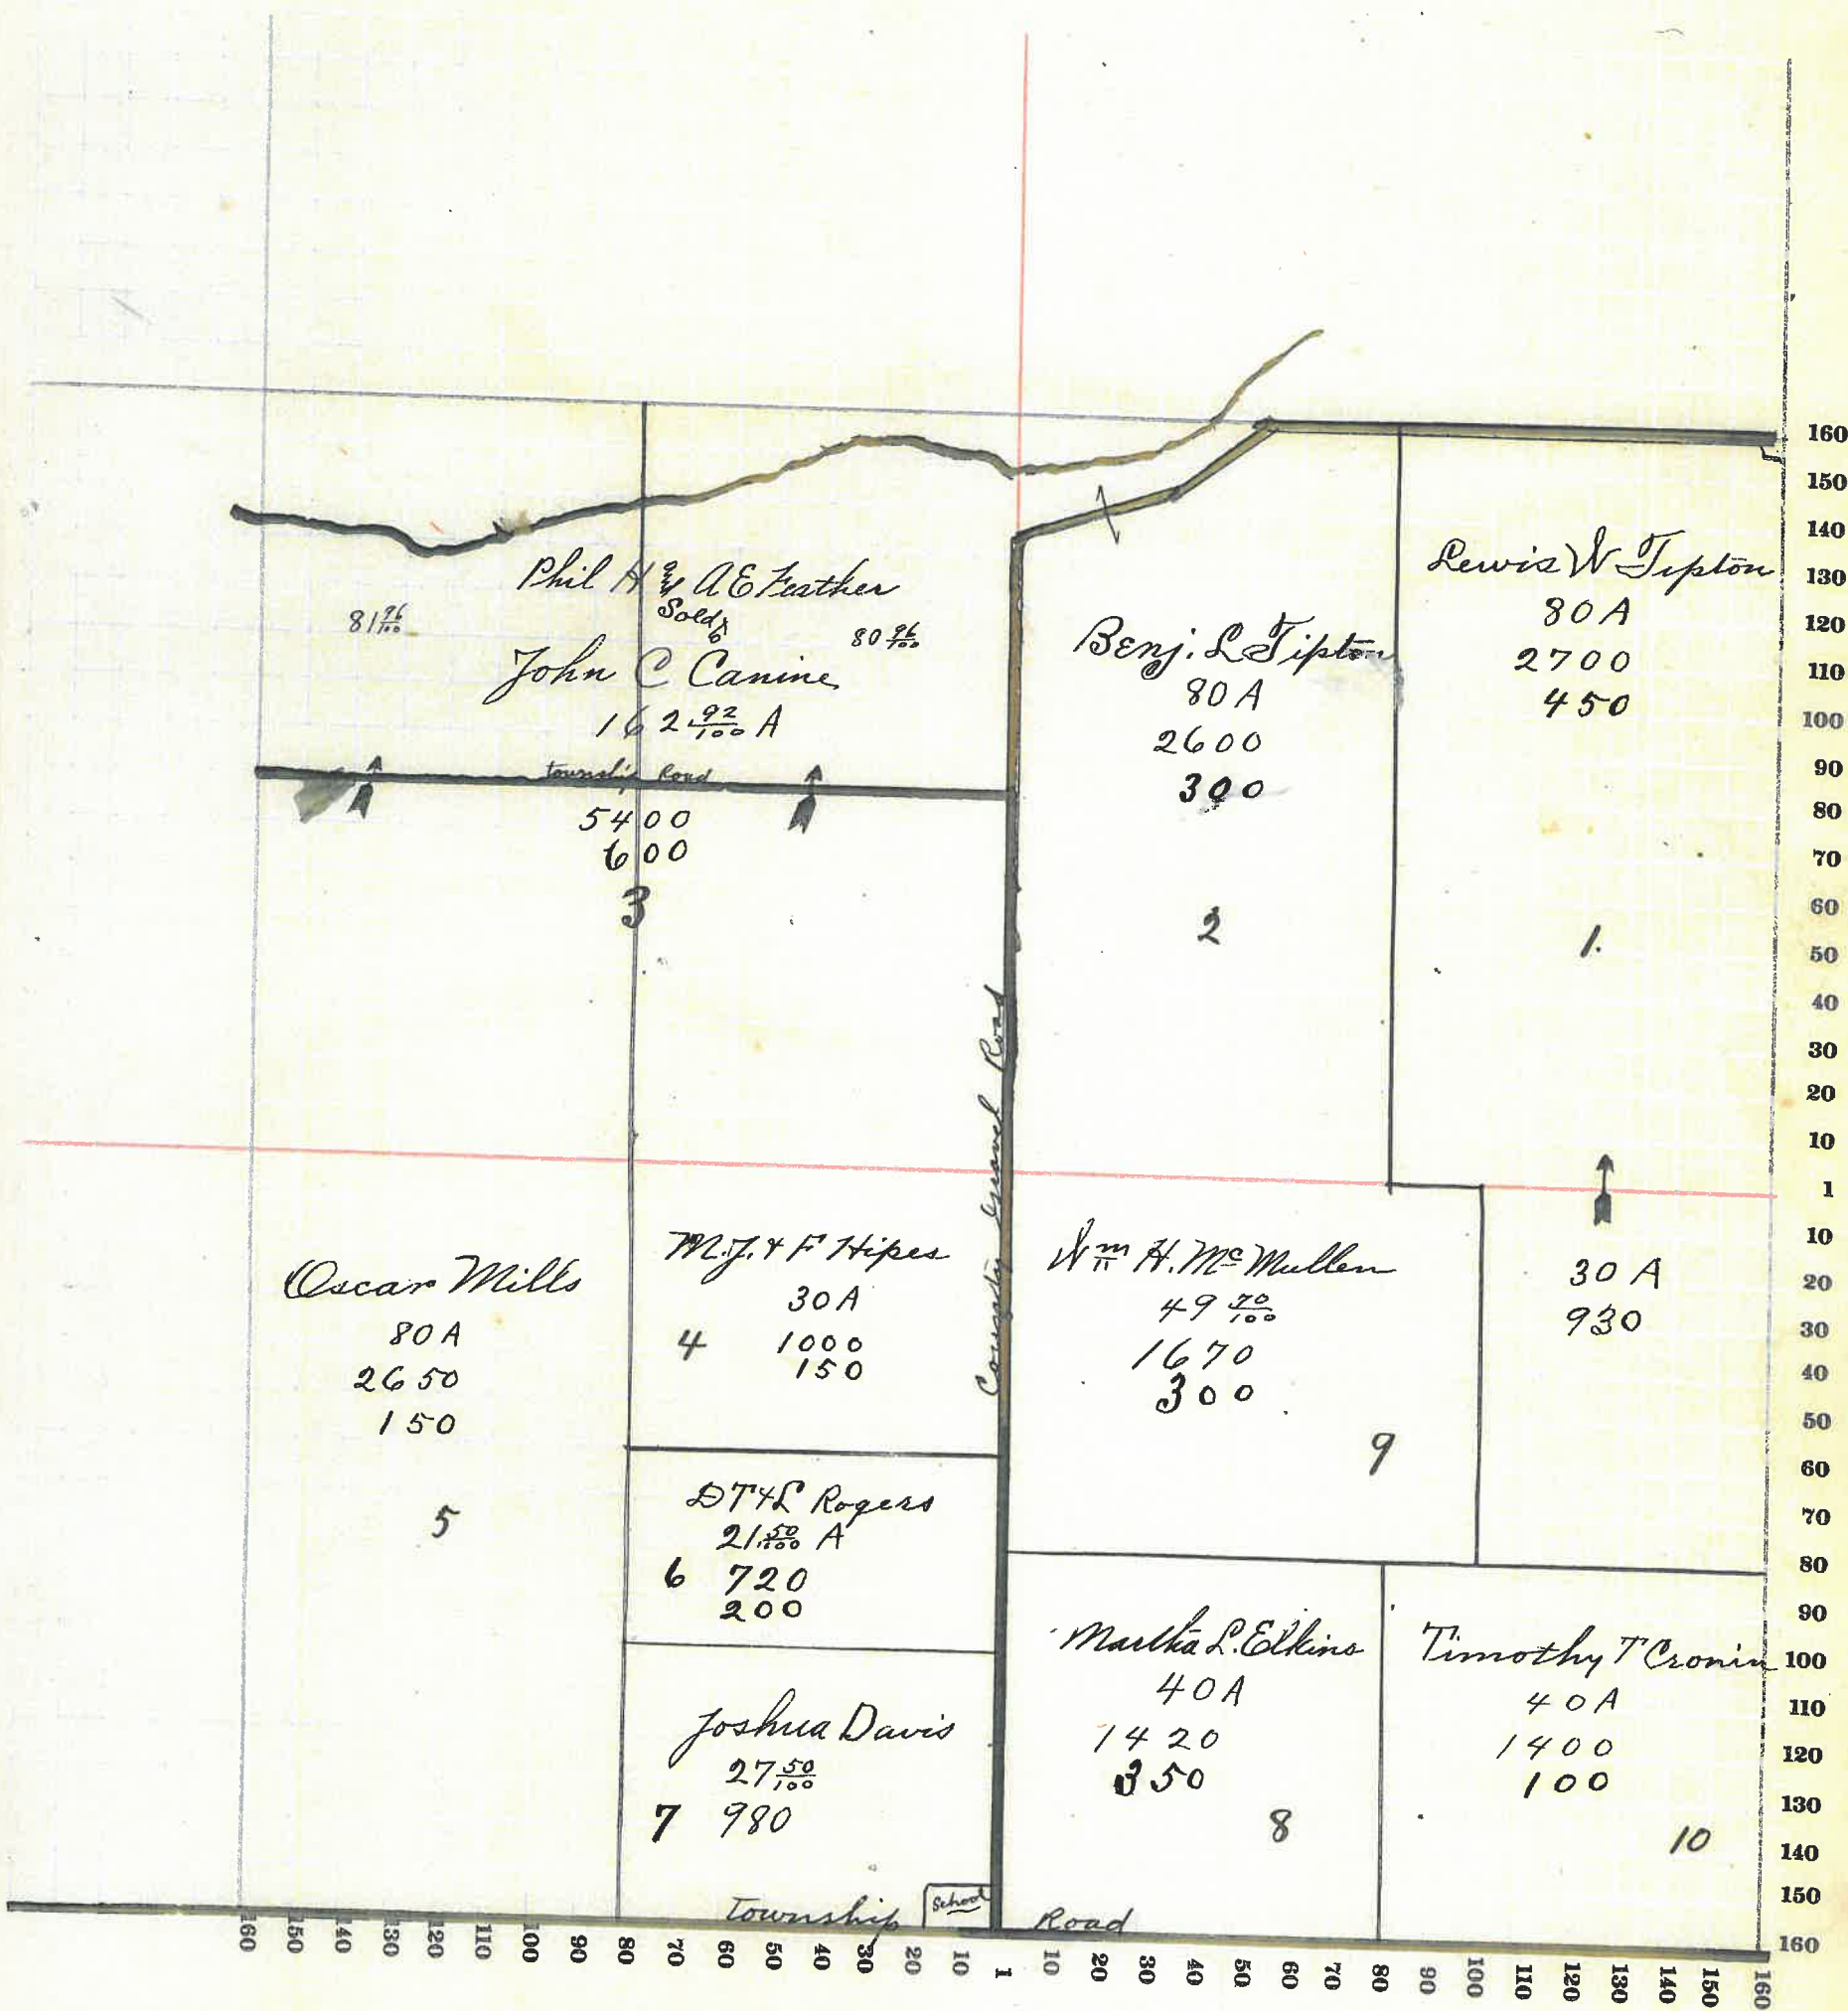 Phil H & A E Feather
Sold to
81 96/100
80 96/100
John C Canine
162 92/100 A
Township Road
5400
600
3
Benj. L Tipton
80 A
2600
300
2
Lewis W Tipton
80 A
2700
450
1.
County Gravel Road
Oscar Mills
80 A
2650
150
5
M.J. & F Hipes
30 A
4 1000
150
D T & L Rogers
21 50/100 A
6 720
200
Joshua Davis
27 50/100
7 980
Wm H. Mc Mullen
49 70/100
1670
300
9
30 A
930
Martha L. Elkins
40 A
1420
350
8
Timothy T Cronin
40 A
1400
100
10
Township
School
Road
160
150
140
130
120
110
100
90
80
70
60
50
40
30
20
10
1
10
20
30
40
50
60
70
80
90
100
110
120
130
140
150
160
160 150 140 130 120 110 100 90 80 70 60 50 40 30 20 10 1 10 20 30 40 50 60 70 80 90 100 110 120 130 140 150 160